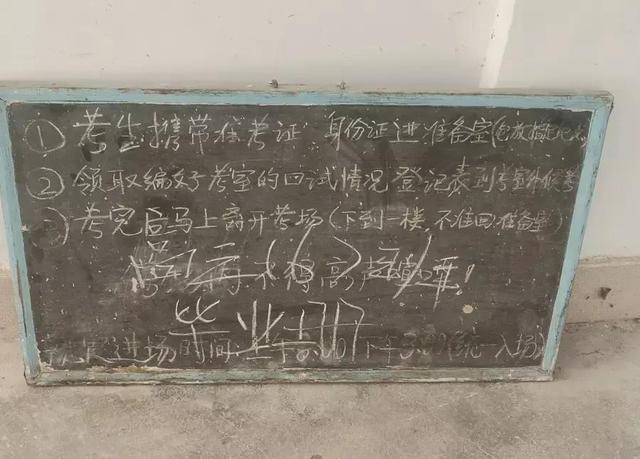 ① 考生携带准考证 身份证进准备室(包放指定
② 领取编好考室的口试情况登记表到考室外候考
考完后马上离开考场(下到一楼,不准回准备室)
不得高声喧哗!
毕业
规定进场时间:上午8:00 下午3:00(统一入场)